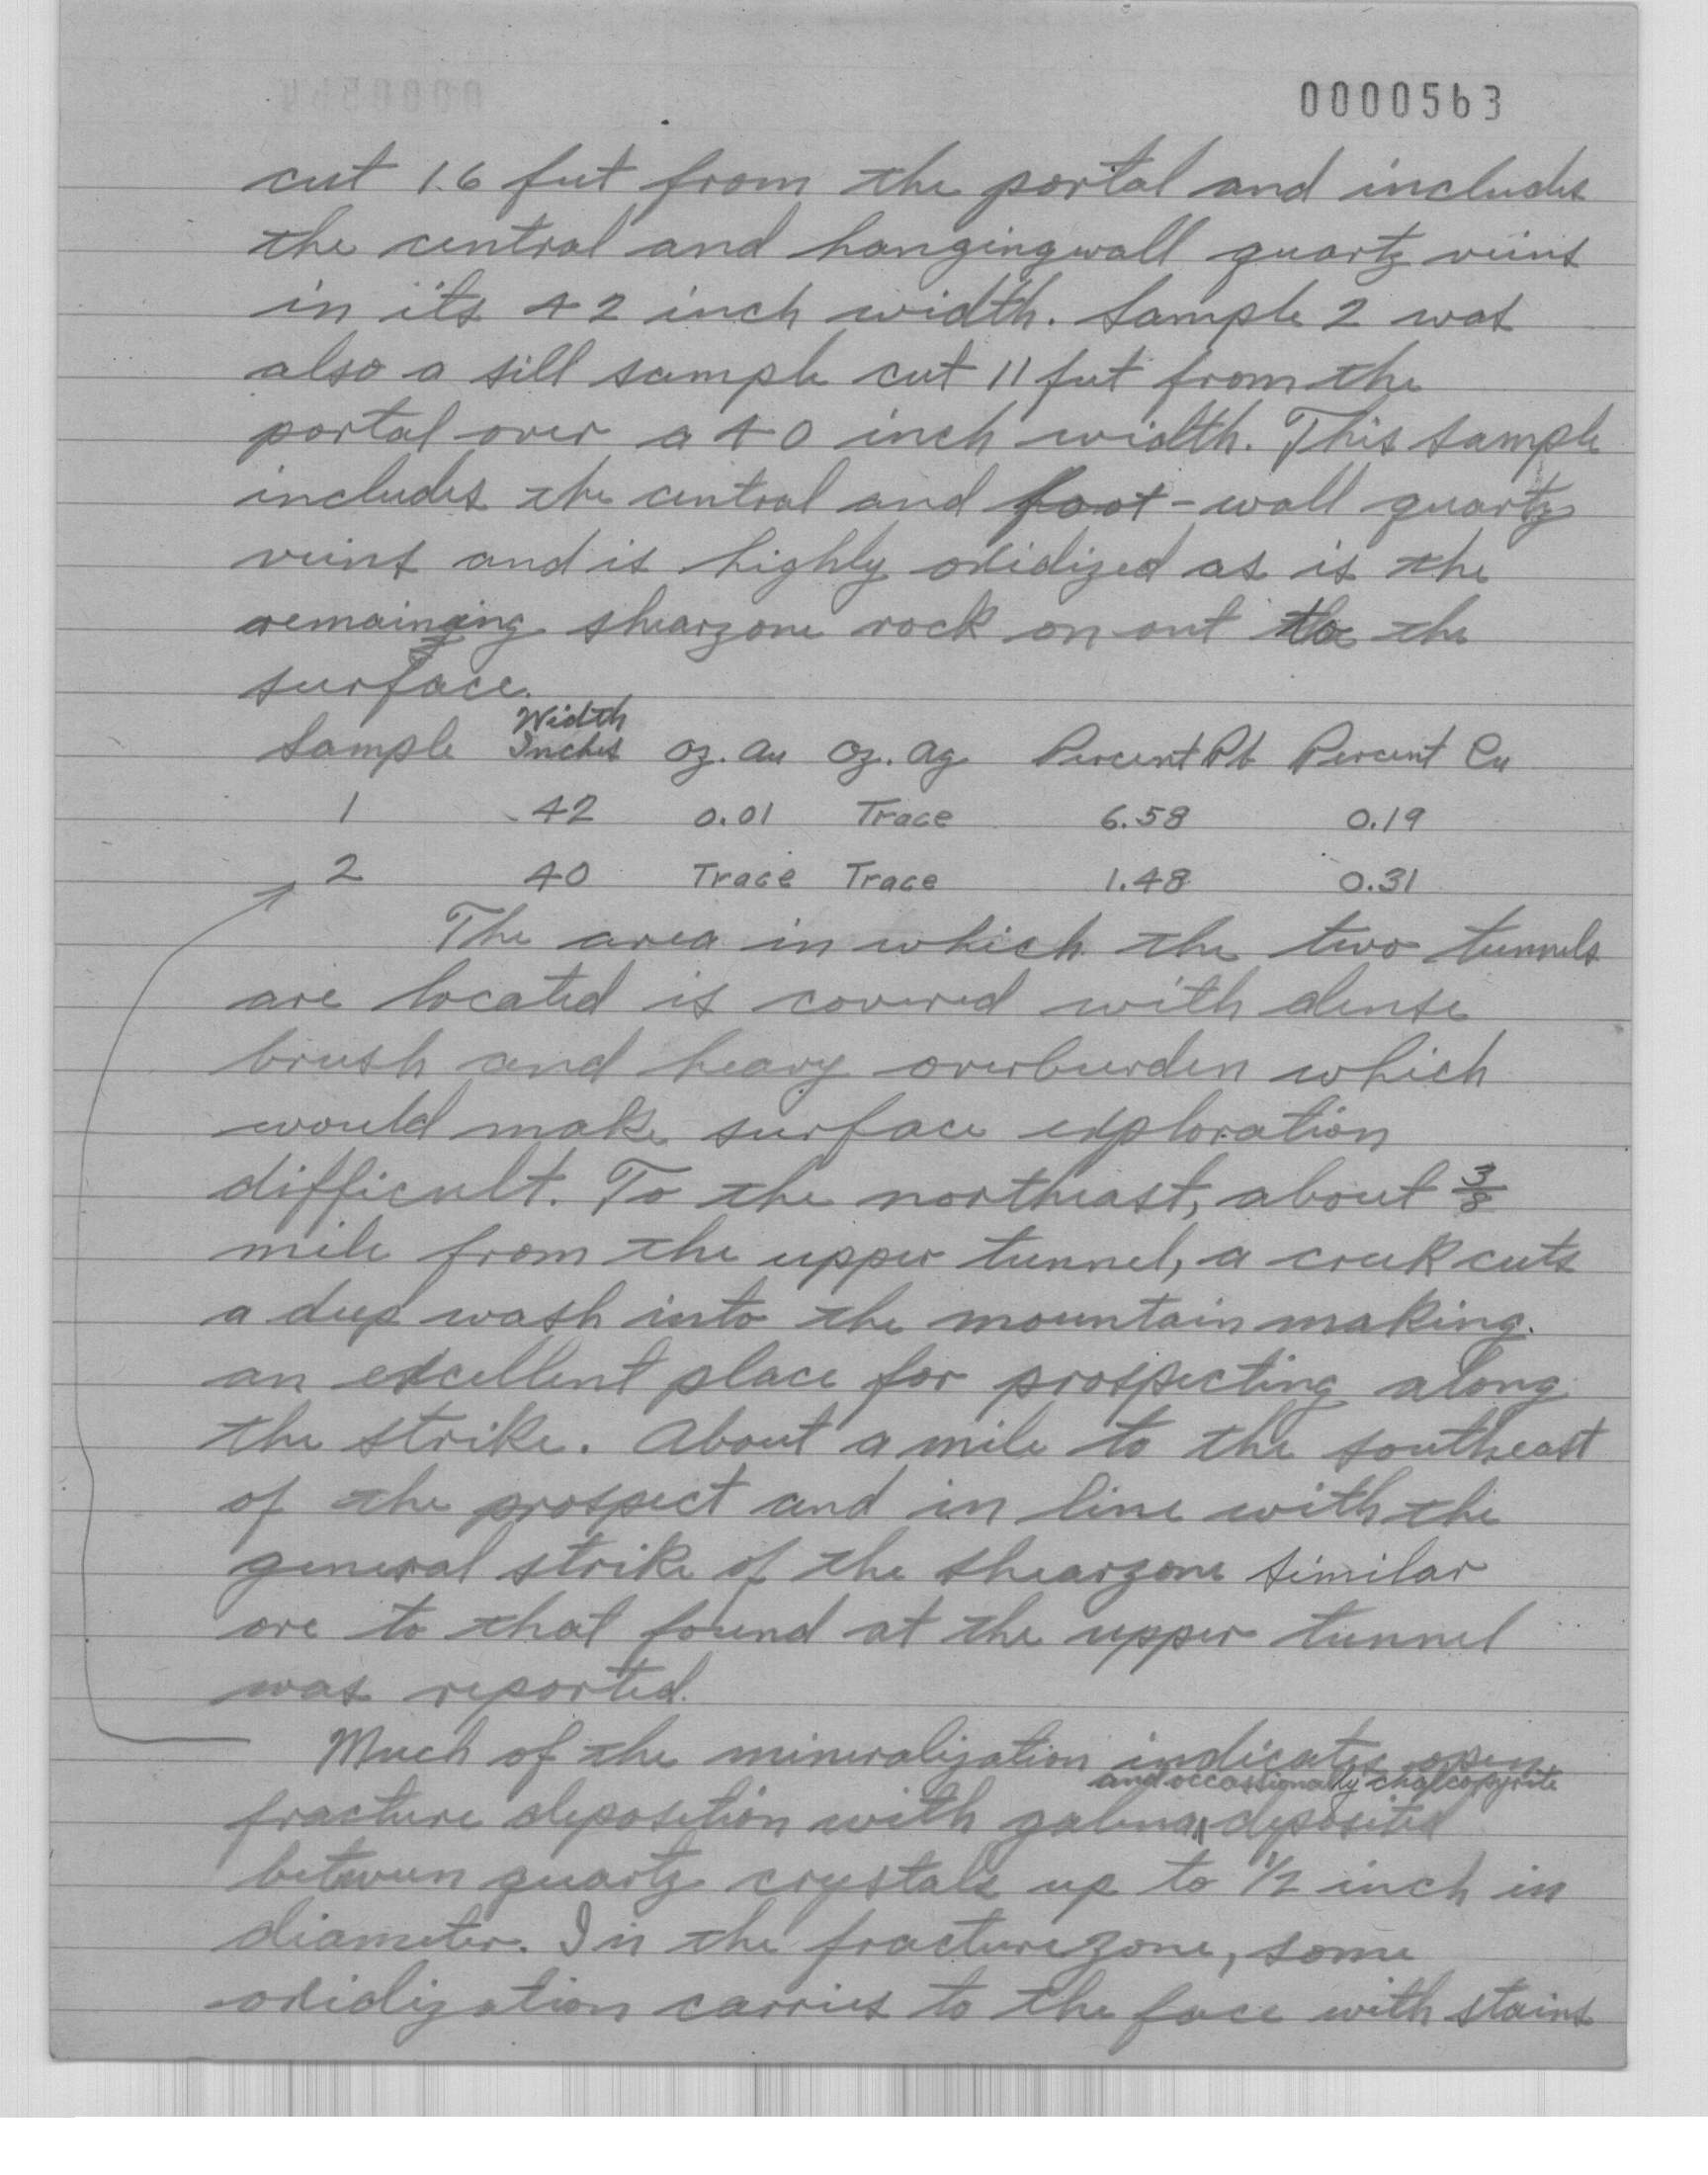 0000563
cut 16 feet from the portal and includes
the central and hangingwall quartz veins
in its 42 inch width. Sample 2 was
also a sill sample cut 11 feet from the
portal over a 40 inch width. This sample
includes the central and foot-wall quartz
veins and is highly oxidized as is the
remaining shearzone rock on out to the
surface.
Sample Width Inches Oz. Au Oz. Ag Percent Pb Percent Cu
1 42 0.01 Trace 6.58 0.19
2 40 Trace Trace 1.48 0.31
The area in which the two tunnels
are located is covered with dense
brush and heavy overburden which
would make surface exploration
difficult. To the northeast, about 3/8
mile from the upper tunnel, a creek cuts
a deep wash into the mountain making
an excellent place for prospecting along
the strike. About a mile to the southeast
of the prospect and in line with the
general strike of the shearzone similar
ore to that found at the upper tunnel
was reported.
Much of the mineralization indicates open
and occassionally chalcopyrite
fracture deposition with galena deposited
between quartz crystals up to 1/2 inch in
diameter. In the fracture zone, some
oxidization carries to the face with stains